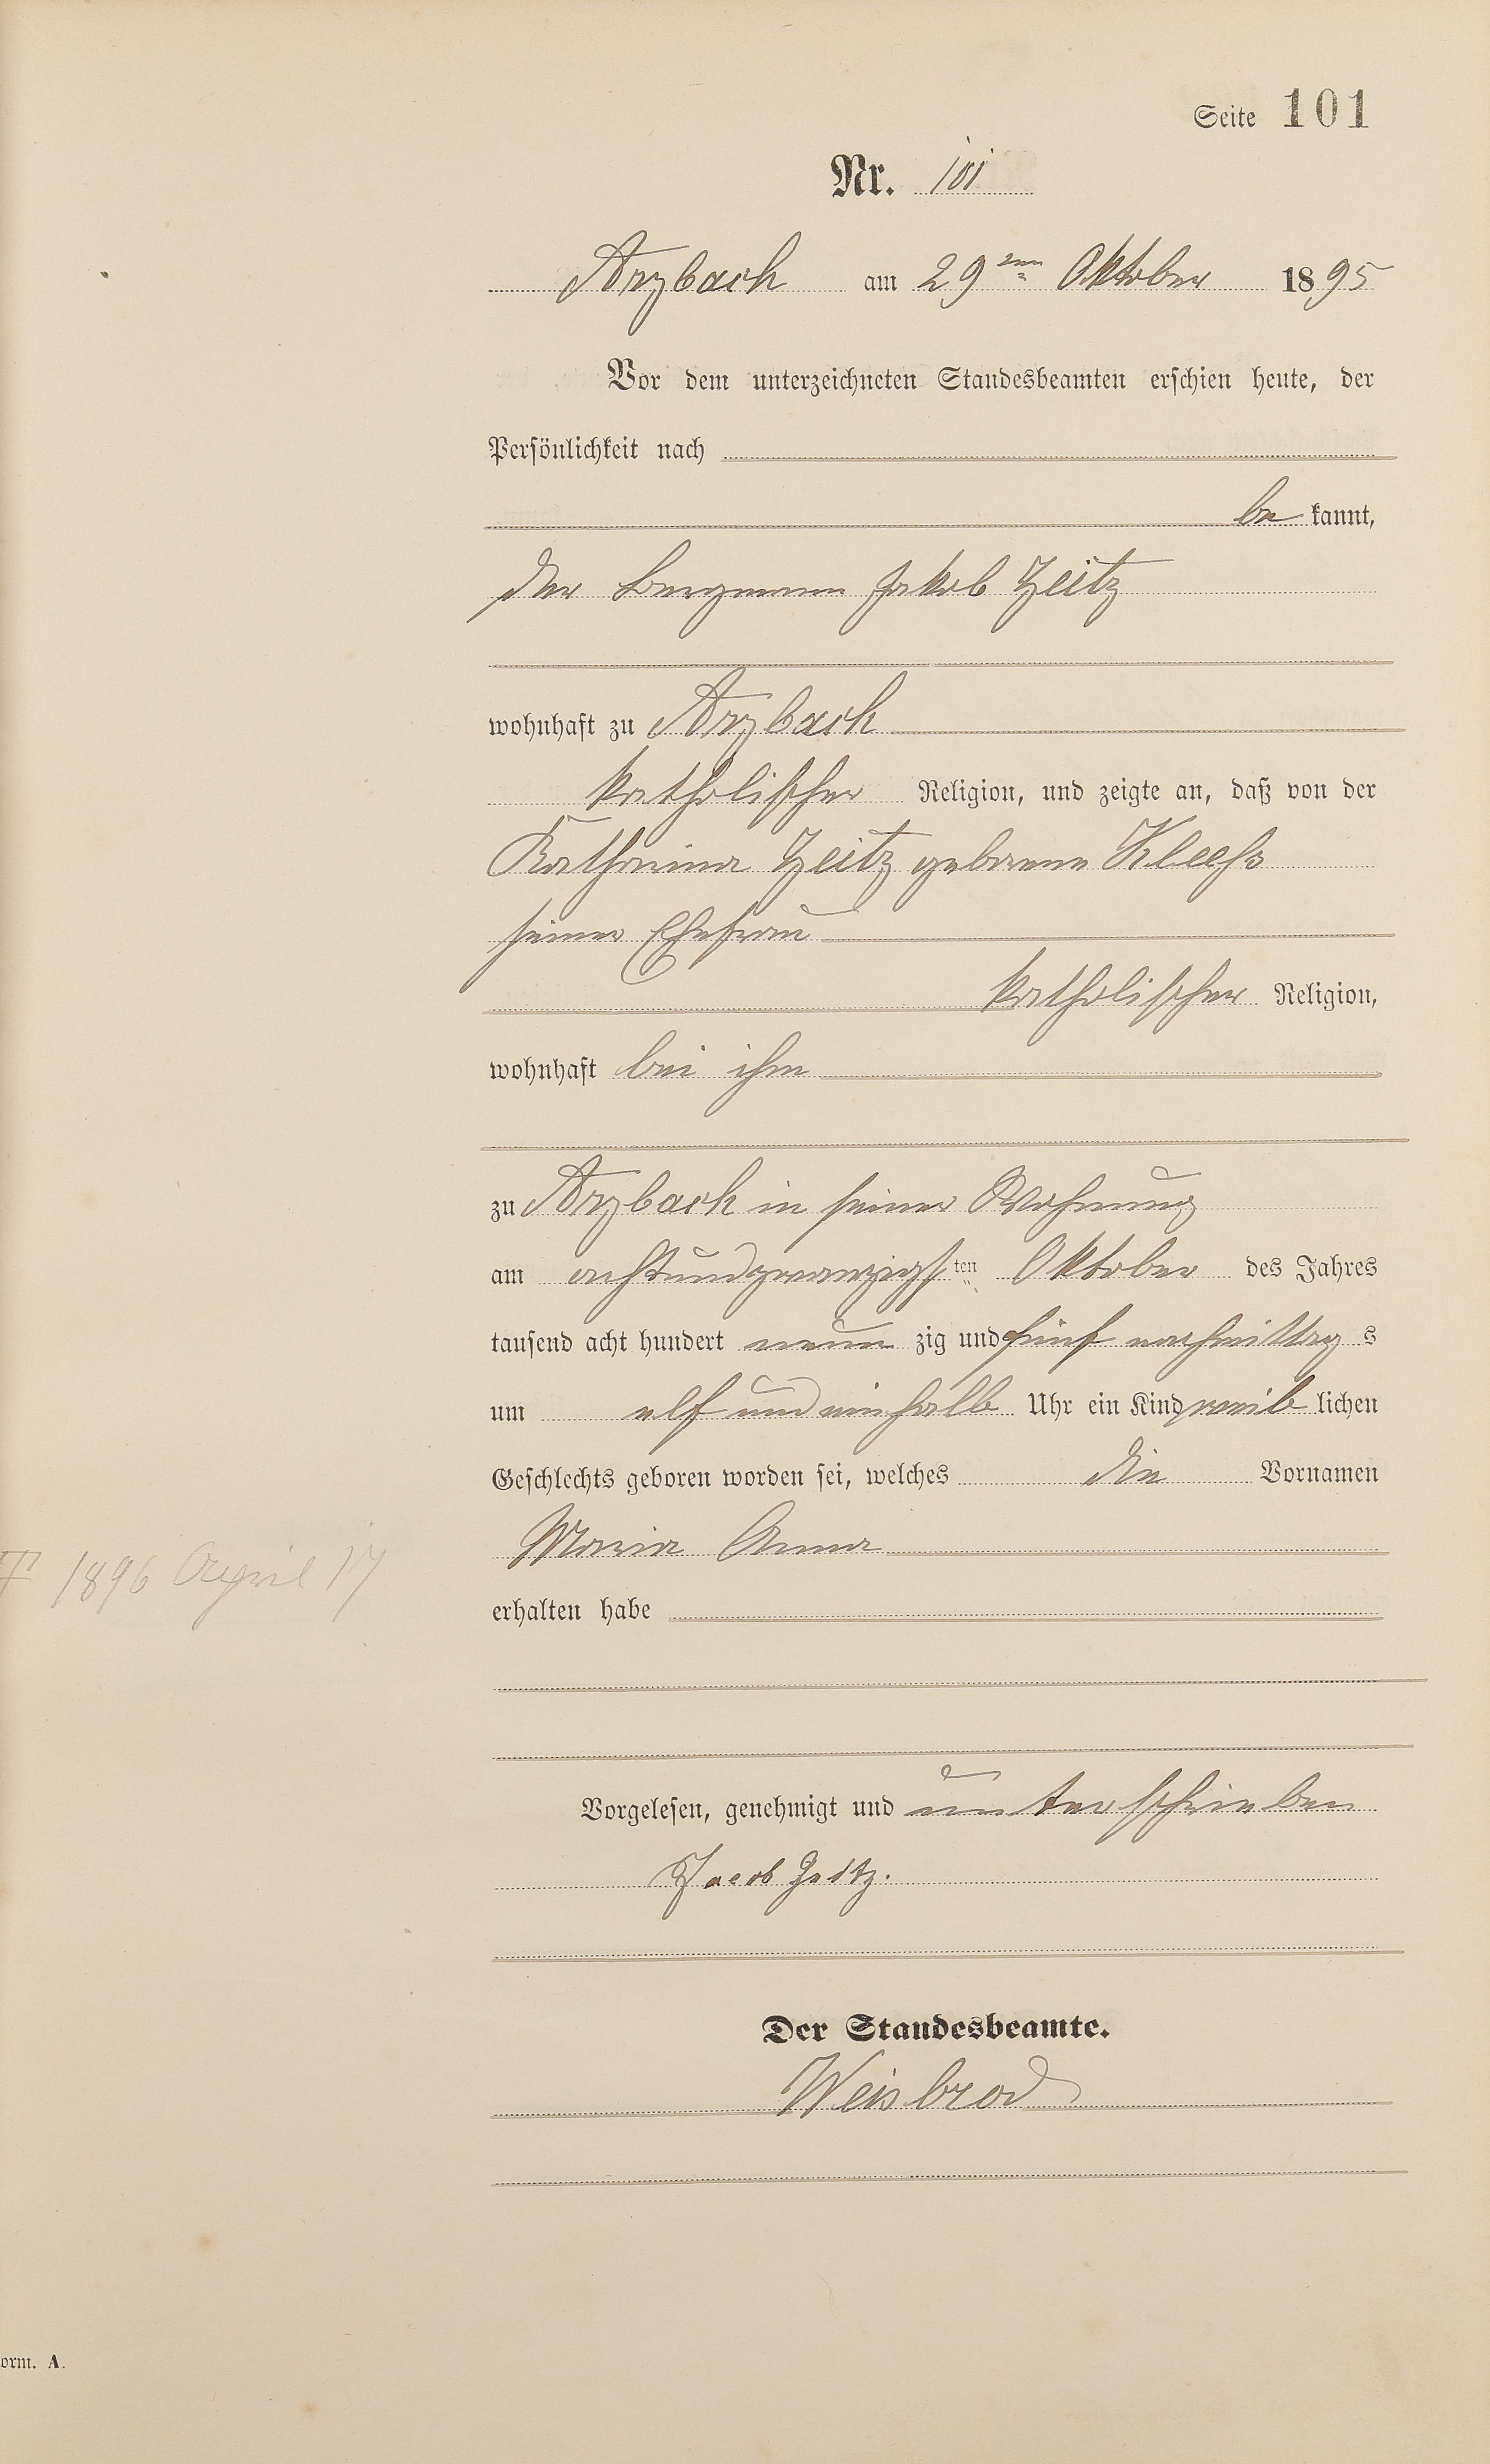 Seite 101
Nr. 101
Arzbach am 29ten Oktober 1895
Vor dem unterzeichneten Standesbeamten erschien heute, der
Persönlichkeit nach
be kannt,
der Bergmann Jakob Zeitz
wohnhaft zu Arzbach
katholischer Religion, und zeigte an, daß von der
Katharina Zeitz geborene Kleeß
seiner Ehefrau
katholischer Religion,
wohnhaft bei ihm
zu Arzbach in seiner Wohnung
am achtundzwanzigsten Oktober des Jahres
tausend acht hundert neun zig und fünf nachmittag s
um elf und ein halb Uhr ein Kind weib lichen
Geschlechts geboren worden sei, welches die Vornamen
Maria Anna
† 1896 April 17
erhalten habe
Vorgelesen, genehmigt und unterschrieben
Jacob Zeitz.
Der Standesbeamte.
Weisbrod
orm. A.